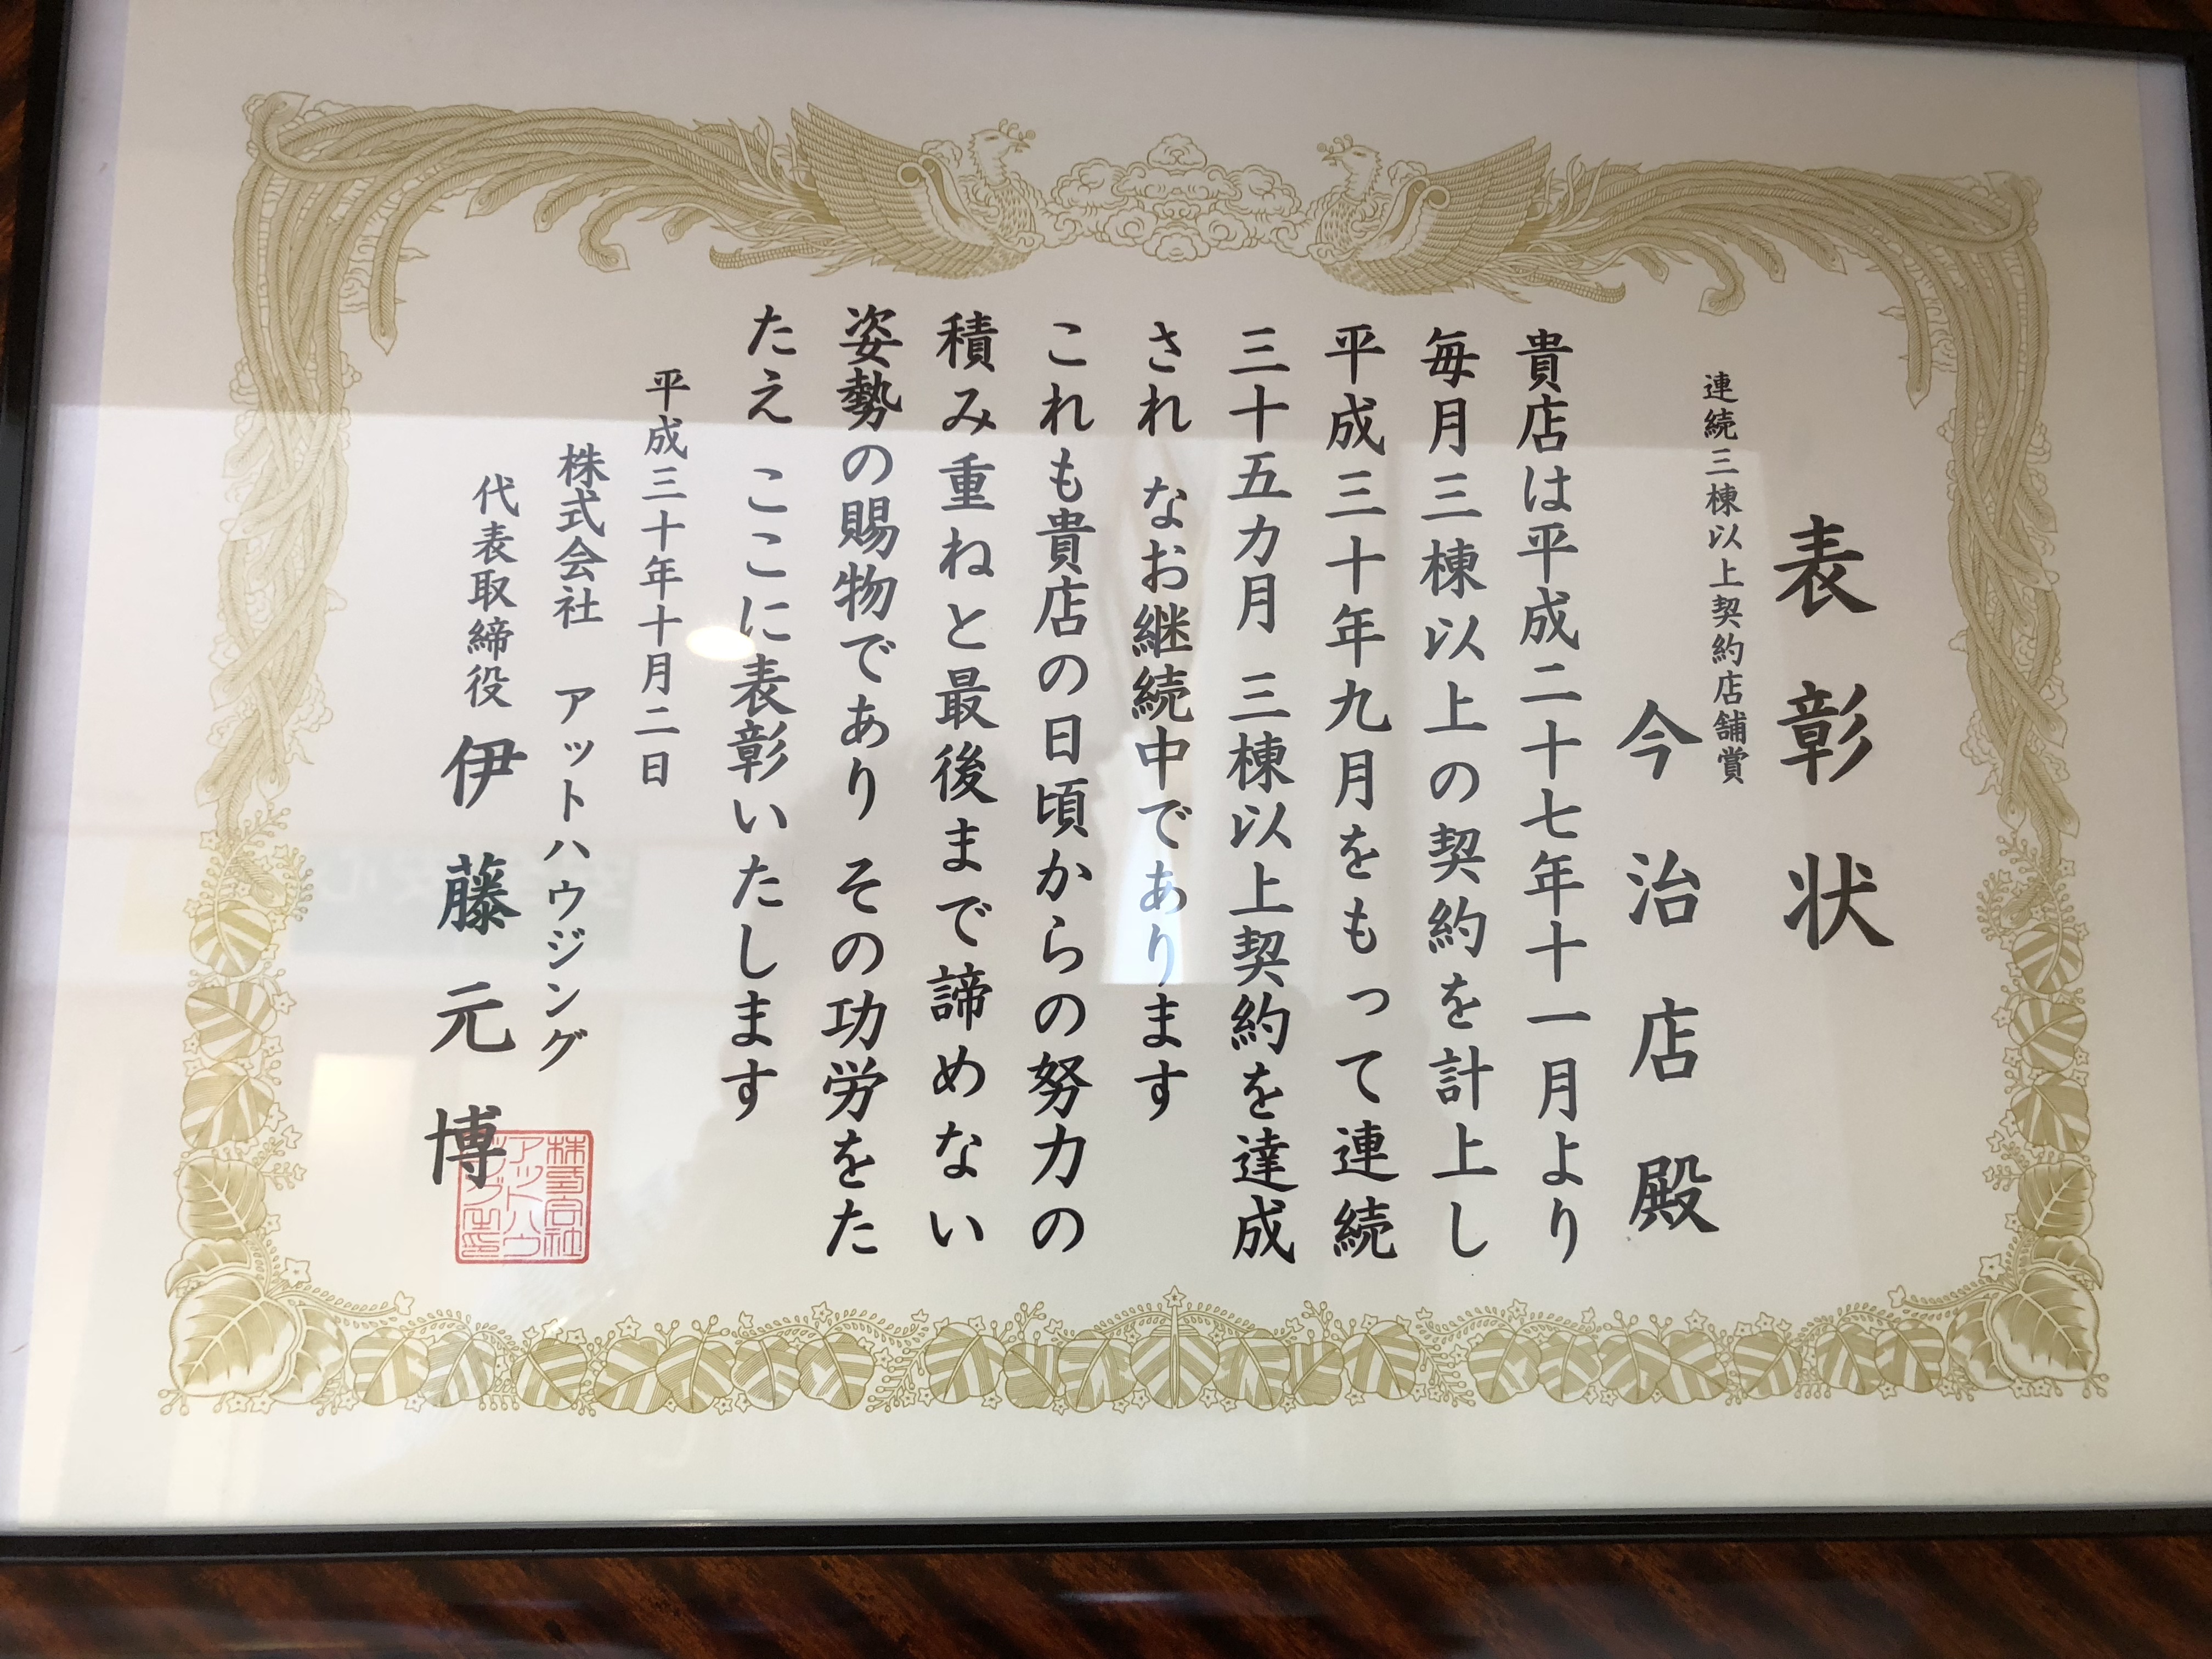 表彰状
連続三棟以上契約店舗賞
今治店殿
貴店は平成二十七年十一月より
毎月三棟以上の契約を計上し
平成三十年九月をもって連続
三十五カ月 三棟以上契約を達成
され なお継続中であります
これも貴店の日頃からの努力の
積み重ねと最後まで諦めない
姿勢の賜物であり その功労をた
たえ ここに表彰いたします
平成三十年十月二日
株式会社 アットハウジング
代表取締役 伊藤元博